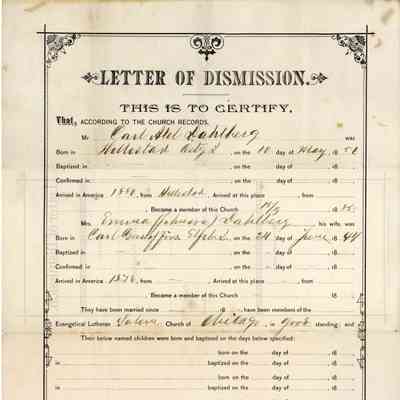 LETTER OF DISMISSION.
THIS IS TO CERTIFY,
That, ACCORDING TO THE CHURCH RECORDS,
Mr Carl Abel Dahlberg was
Born in on the 10 day of May 18 50
Baptized in on the day of 18
Confirmed in on the day of 18
Arrived in America 1880, from Arrived at this place , from
Become a member of this Church 18 85.
Mrs. Emma (Johnson) Dahlberg , his wife, was
Born in Carl on the 24 day of June 18 44
Baptized in on the day of 18
Confirmed in on the day of 18
Arrived in America from Arrived at this place , from
Become a member of this Church 18
They have been married since 18 , have been members of the
Evangelical Lutheran Salem Church of Chicago in good standing ; and
Their below named children were born and baptized on the days below specified:
born on the day of 18
in baptized on the day of 18
born on the day of 18
in baptized on the day of 18
born on the day of 18